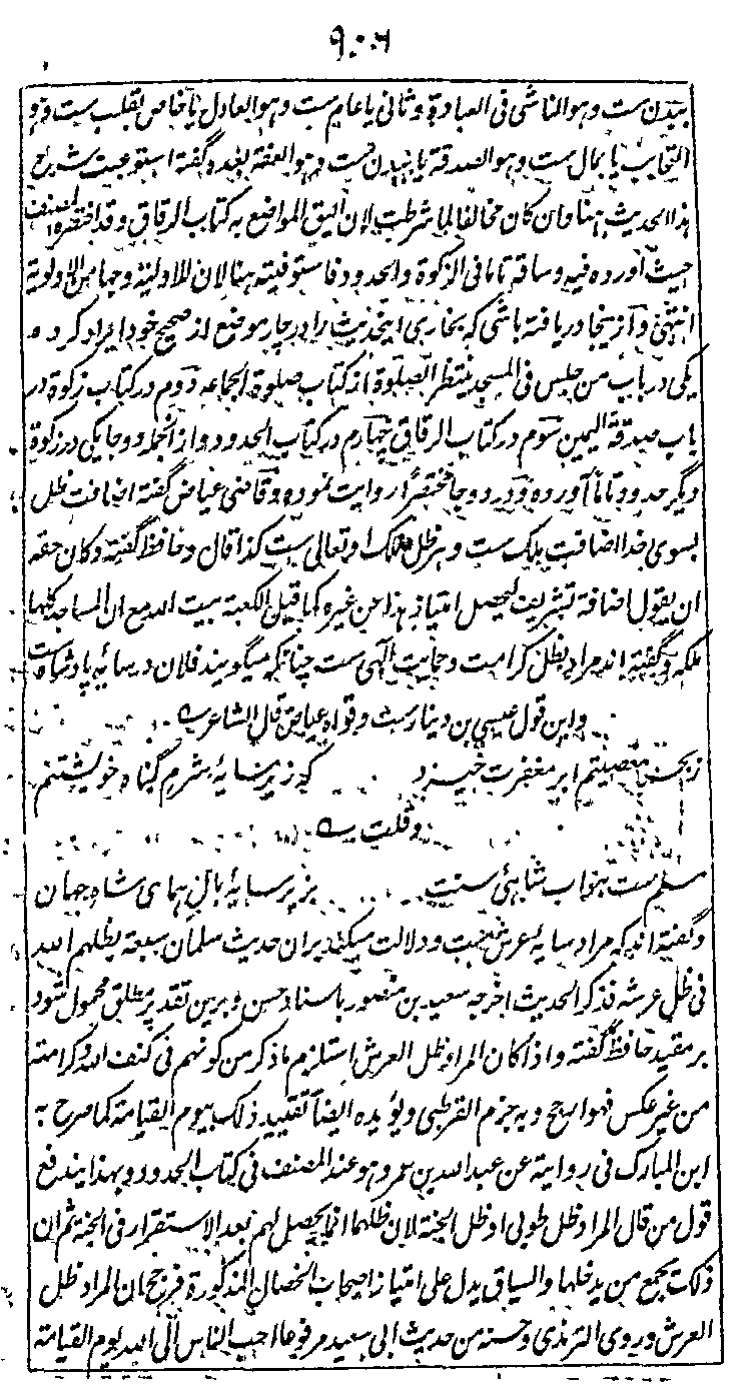 ۹۰۶
ببدن ست و هو الناشی فی العبادة و ثانی یا عام ست و هو العادل یا خاص بقلب ست و هو
التحابب یا بمال ست و هو الصدقة یا ببدن ست و هو العفة بعده گفته استوعبت شرح
هذا الحدیث هنا وان کان مخالفا لما شرطت لان الیق المواضع به کتاب الرقاق وقد اختصره المصنف
حیث اورده فیه وساقه تاما فی الزکوة والحدود فاستوفیته هنا لان للاولیة وجها من الاولویة
انتهی و از ینجا دریافته باشی که بخاری اینحدیث را در چار موضع از صحیح خود ایراد کرده
یکی در باب من جلس فی المسجد ینتظر الصلوة از کتاب صلوة الجماعه دوم در کتاب زکوة در
باب صدقة الیمین سوم در کتاب الرقاق چهارم در کتاب الحدود و از انجمله دو جا یکی در زکوة
دیگر حدود تاماً آورده و در دو جا مختصراً روایت نموده و قاضی عیاض گفته اضافت ظل
بسوی خدا اضافت ملک ست و هر ظل ملک او تعالی ست کذا قال و حافظ گفته وکان حقه
ان یقول اضافة تشریف لیحصل امتیاز هذا عن غیره کما قیل للکعبة بیت الله مع ان المساجد کلها
ملکه و گفته اند مراد بظل کرامت و حمایت الهی ست چنانکه میگویند فلان در سایه پادشاه ست
و این قول عیسی بن دینار ست و قواه عیاض قال الشاعر ؎
ز بحر معصیتم ابر مغفرت خیزد که زیر سایهٔ شرم گناه خویشتنم
و قلت ؎
مسلم ست بنواب شاهی سنت بزیر سایهٔ بال همای شاه جهان
و گفته اند که مراد سایه عرش ست و دلالت میکند بران حدیث سلمان سبعة یظلهم الله
فی ظل عرشه فذکر الحدیث اخرجه سعید بن منصور باسناد حسن و برین تقدیر مطلق محمول شود
بر مقید حافظ گفته واذا کان المراد ظل العرش استلزم ما ذکر من کونهم فی کنف الله وکرامته
من غیر عکس فهو ارجح وبه جزم القرطبی ویؤیده ایضاً تقیید ذلک بیوم القیامة کما صرح به
ابن المبارک فی روایته عن عبد الله بن عمر وهو عند المصنف فی کتاب الحدود وبهذا یندفع
قول من قال المراد ظل طوبی او ظل الجنة لان ظلهما انما یحصل لهم بعد الاستقرار فی الجنة ثم ان
ذلک یجمع من یدخلها والسیاق یدل علی امتیاز اصحاب الخصال المذکورة فرجح ان المراد ظل
العرش وروی الترمذی وحسنه من حدیث ابی سعید مرفوعا احب الناس الی الله یوم القیامة